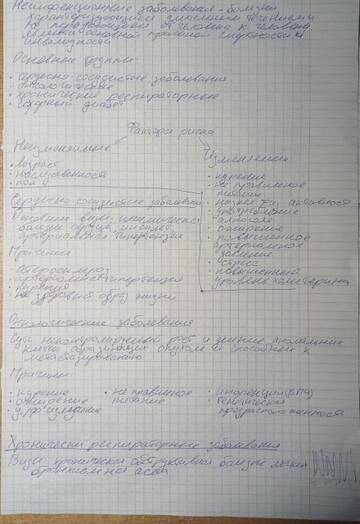 Неинфекционные заболевания - болезни
характеризующиеся длительным течением и
не передающиеся от человека к человеку,
причиной смертности и
инвалидности
Основные группы:
• сердечно-сосудистые заболевания
• онкологические
• хронические респираторные
• сахарный диабет
Факторы риска
Неизменяемые
• возраст
• наследственность
• пол
Изменяемые
• курение
• не правильное
питание
• низкая физ. активность
• употребление
алкоголя
• ожирение
• повышенное
артериальное
давление
• стресс
• повышенный
уровень холестерина
Сердечно-сосудистые заболевания
Основные виды: ишемическая
болезнь сердца, инсульт,
артериальная гипертензия
Причины:
• атеросклероз
• артериальная гипертензия
• курение
• не здоровый образ жизни
Онкологические заболевания
Суть: неконтролируемый рост и деление аномальных
клеток образующих опухоли и способных к
метастазированию
Причины:
• курение
• ожирение
• уф излучение
• не правильное
питание
• инфекции (ВПЧ)
• генетическая
предрасположенность
Хронические респираторные заболевания
Виды: хроническая обструктивная болезнь легких
бронхиальная астма